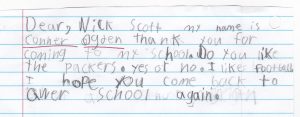 Dear, Nick Scott my name is
Conner Ogden thank you for
coming to my school. Do you like
the packers. yes or no. I like football
I hope you come back to
Awer school again.